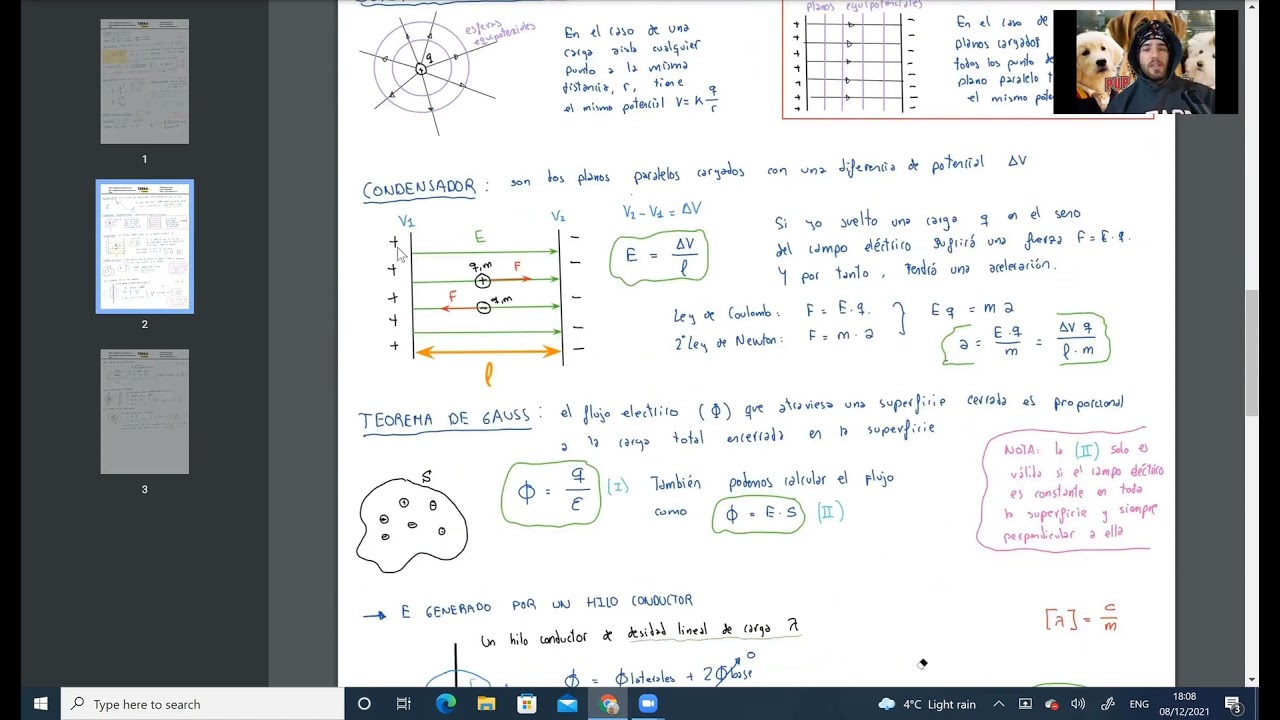 esferas
equipotenciales
q
En el caso de una
carga aisla cualquier
punto a la misma
distancia, r, tiene
el mismo potencial V = K q/r
planos equipotenciales
En el caso de
planos cargados
todos los punto de
plano paralelo t
el mismo pote
PUP
CONDENSADOR : son dos planos paralelos cargados con una diferencia de potencial ΔV
V1
V2
V1 - V2 = ΔV
E
q,m
F
F
q,m
l
E = ΔV/l
Si so suelta una carga q en el seno
del campo eléctrico sufrirá una fuerza F = E·q.
Y por tanto, tendrá una aceleración.
Ley de Coulomb: F = E·q.
2ª Ley de Newton: F = m·a
E q = m a
a = E·q/m = ΔV q/l·m
TEOREMA DE GAUSS : el flujo electrico (ϕ) que atraviesa una superficie cerrada es proporcional
a la carga total encerrada en la superficie
S
ϕ = q/ε (I)
También podemos calcular el flujo
como ϕ = E·S (II)
NOTA: la (II) solo es
válida si el campo eléctrico
es constante en toda
la superficie y siempre
perpendicular a ella
→ E GENERADO POR UN HILO CONDUCTOR
Un hilo conductor de desidad lineal de carga λ
[λ] = C/m
ϕ = ϕlaterales + 2ϕbase 0
1
2
3
Type here to search
4°C Light rain
ENG
18:08
08/12/2021
3